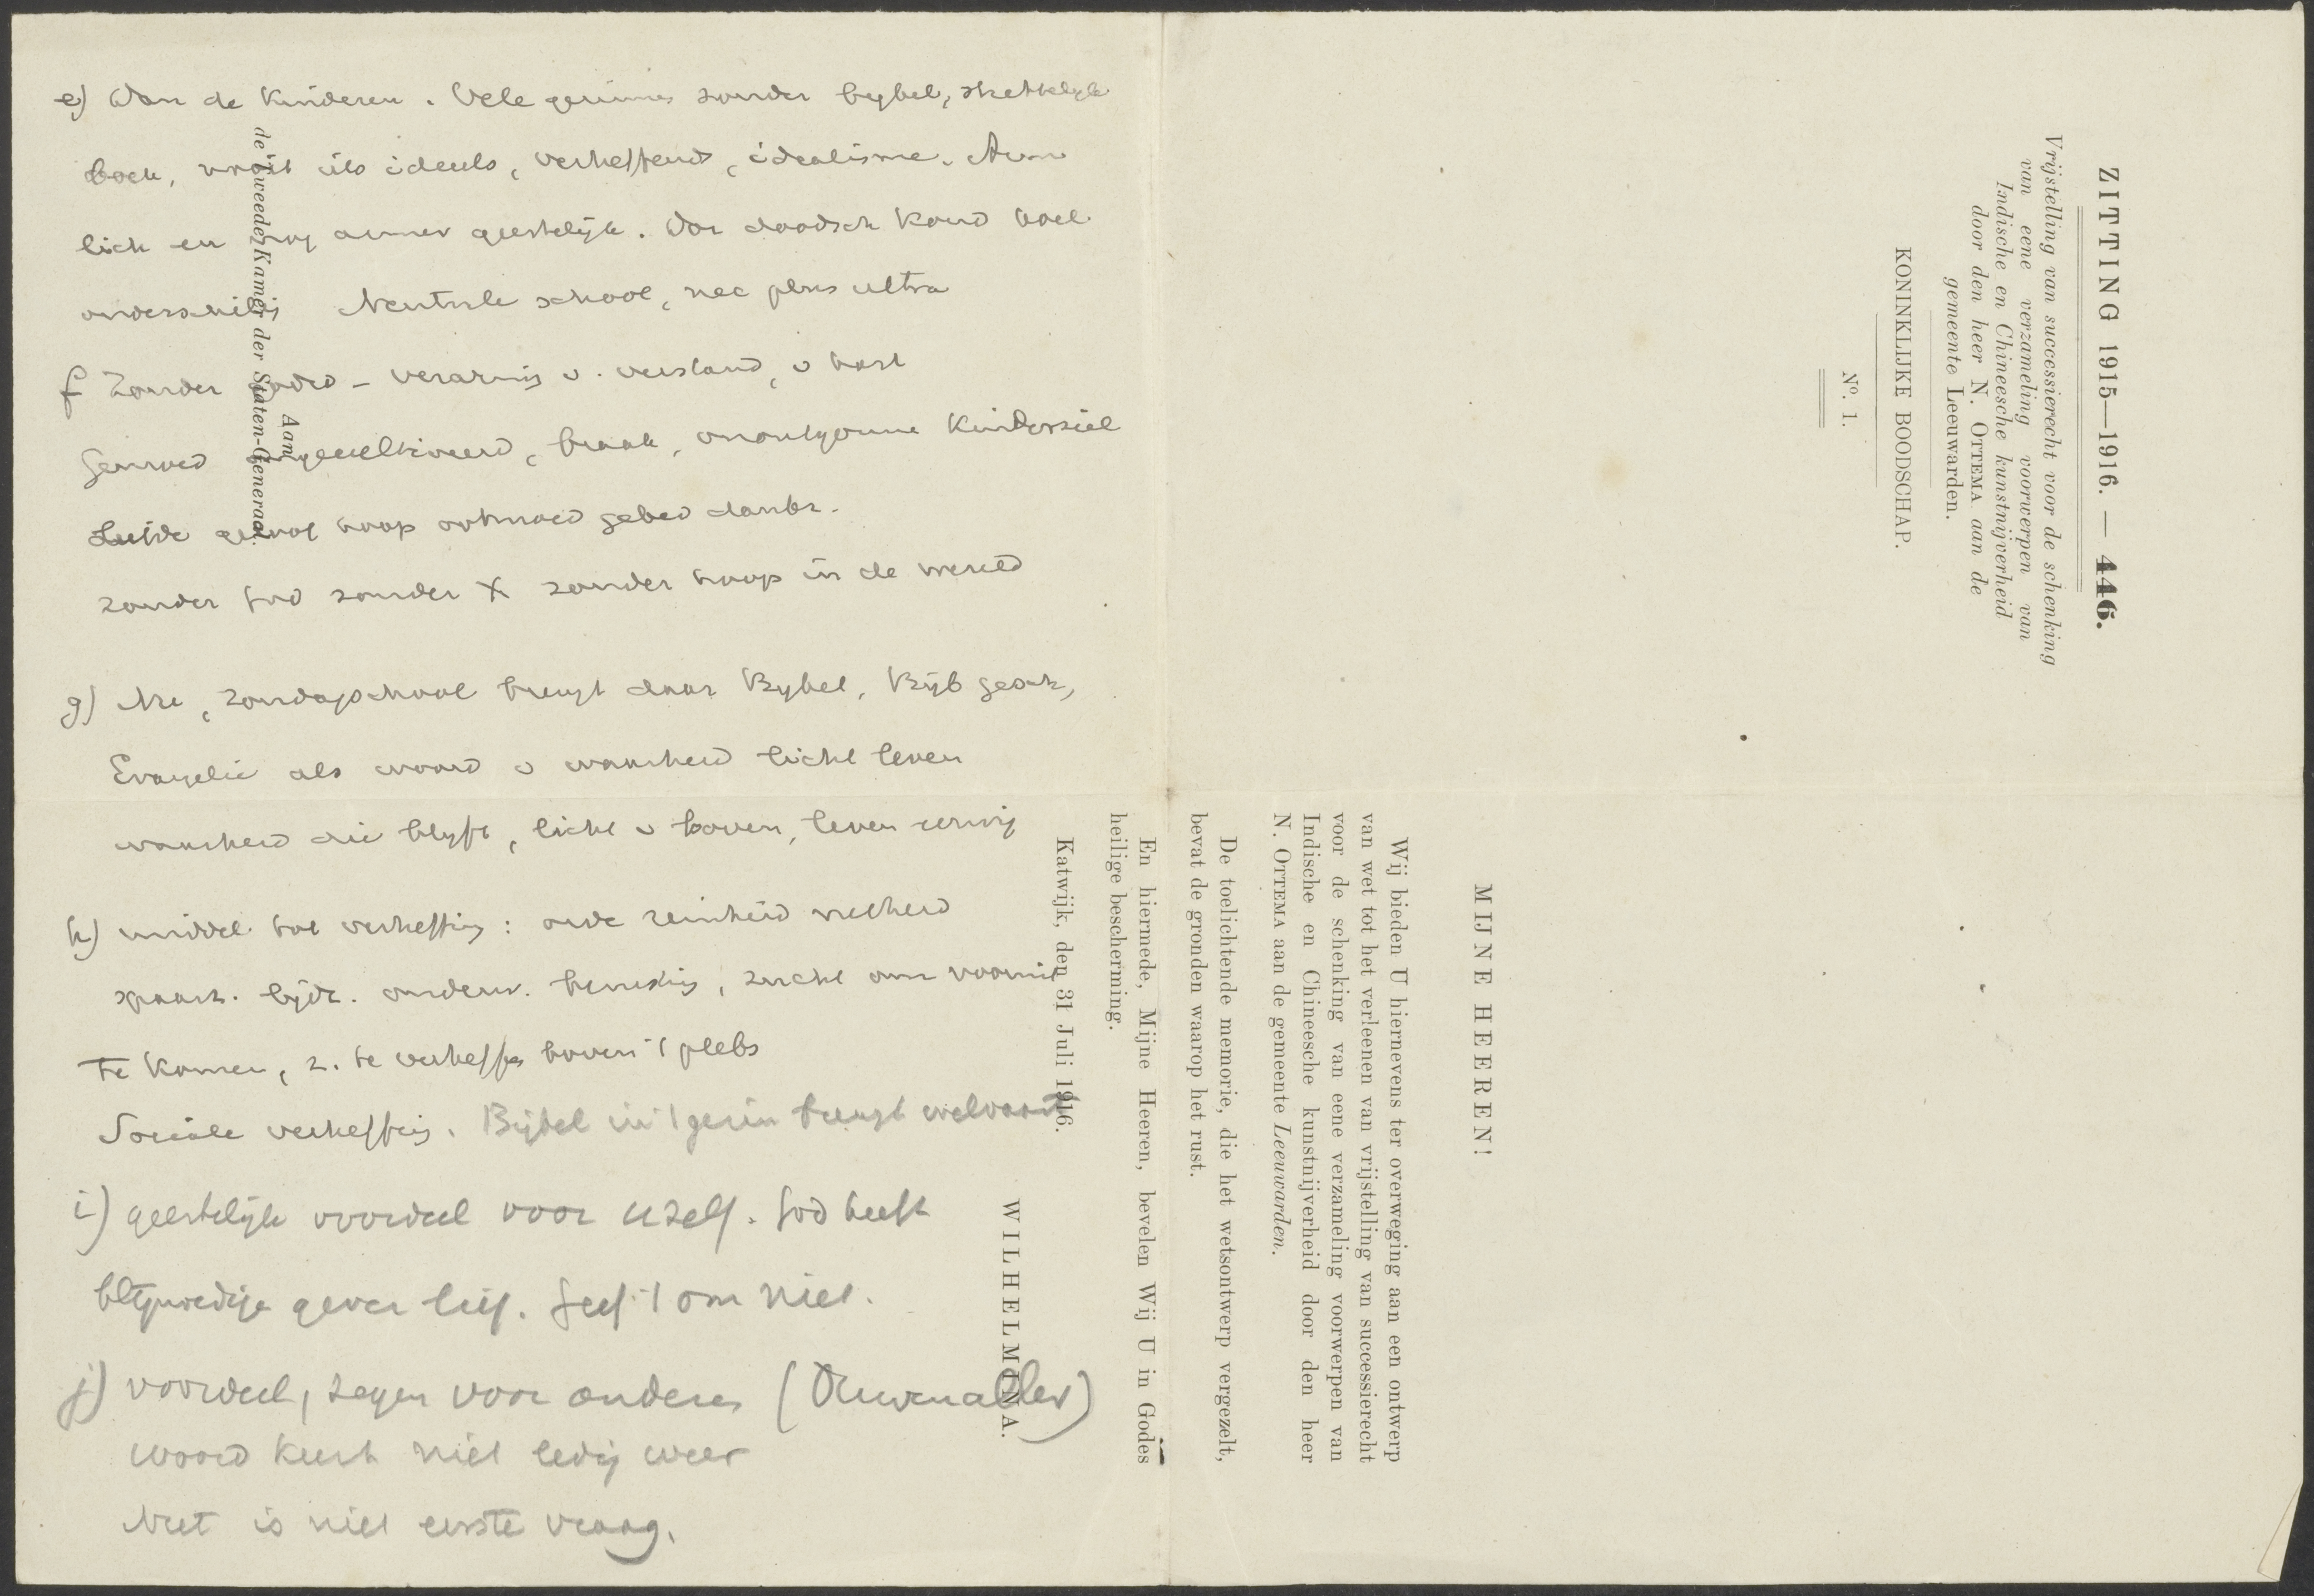 e) Van de Kinderen. Vele gezinnen zonder bybel,
boek, nooit iets ideeels, verheffends, idealisme. Arm
lich en nog armer geestelijk. Dor doodsch koud
onverschillig Neutrale school, nec plus ultra
f Zonder godsd - verarming v. verstand, v hart
Gemoed ongecultiveerd, braak, onontgonnen Kinderziel
Liefde geloof hoop ootmoed gebed dankb.
zonder God zonder X zonder hoop in de wereld
g) Nu, zondagschool brengt daar Bybel, Bijb gesch,
Evangelie als woord v waarheid licht leven
waarheid die blyft, licht v boven, leven eeuwig
h) middel tot verheffing: orde reinheid netheid
spaarz. onderw. zucht om vooruit
te komen, z. te verheffen boven 't plebs
Sociale verheffing. Bijbel in 't gezin brengt welvaart
i) geestelijk voordeel voor uzelf. God heeft
blijmoedige gever lief. Geef 't om niet.
j) voordeel, zegen voor anderen
woord keert niet ledig weer
Nut is niet eerste vraag.
Aan
de Tweede Kamer der Staten-Generaal.
ZITTING 1915—1916. — 446.
Vrijstelling van successierecht voor de schenking
van eene verzameling voorwerpen van
Indische en Chineesche kunstnijverheid
door den heer N. OTTEMA aan de
gemeente Leeuwarden.
KONINKLIJKE BOODSCHAP.
No. 1.
MIJNE HEEREN!
Wij bieden U hiernevens ter overweging aan een ontwerp
van wet tot het verleenen van vrijstelling van successierecht
voor de schenking van eene verzameling voorwerpen van
Indische en Chineesche kunstnijverheid door den heer
N. OTTEMA aan de gemeente Leeuwarden.
De toelichtende memorie, die het wetsontwerp vergezelt,
bevat de gronden waarop het rust.
En hiermede, Mijne Heeren, bevelen Wij U in Godes
heilige bescherming.
Katwijk, den 31 Juli 1916.
WILHELMINA.